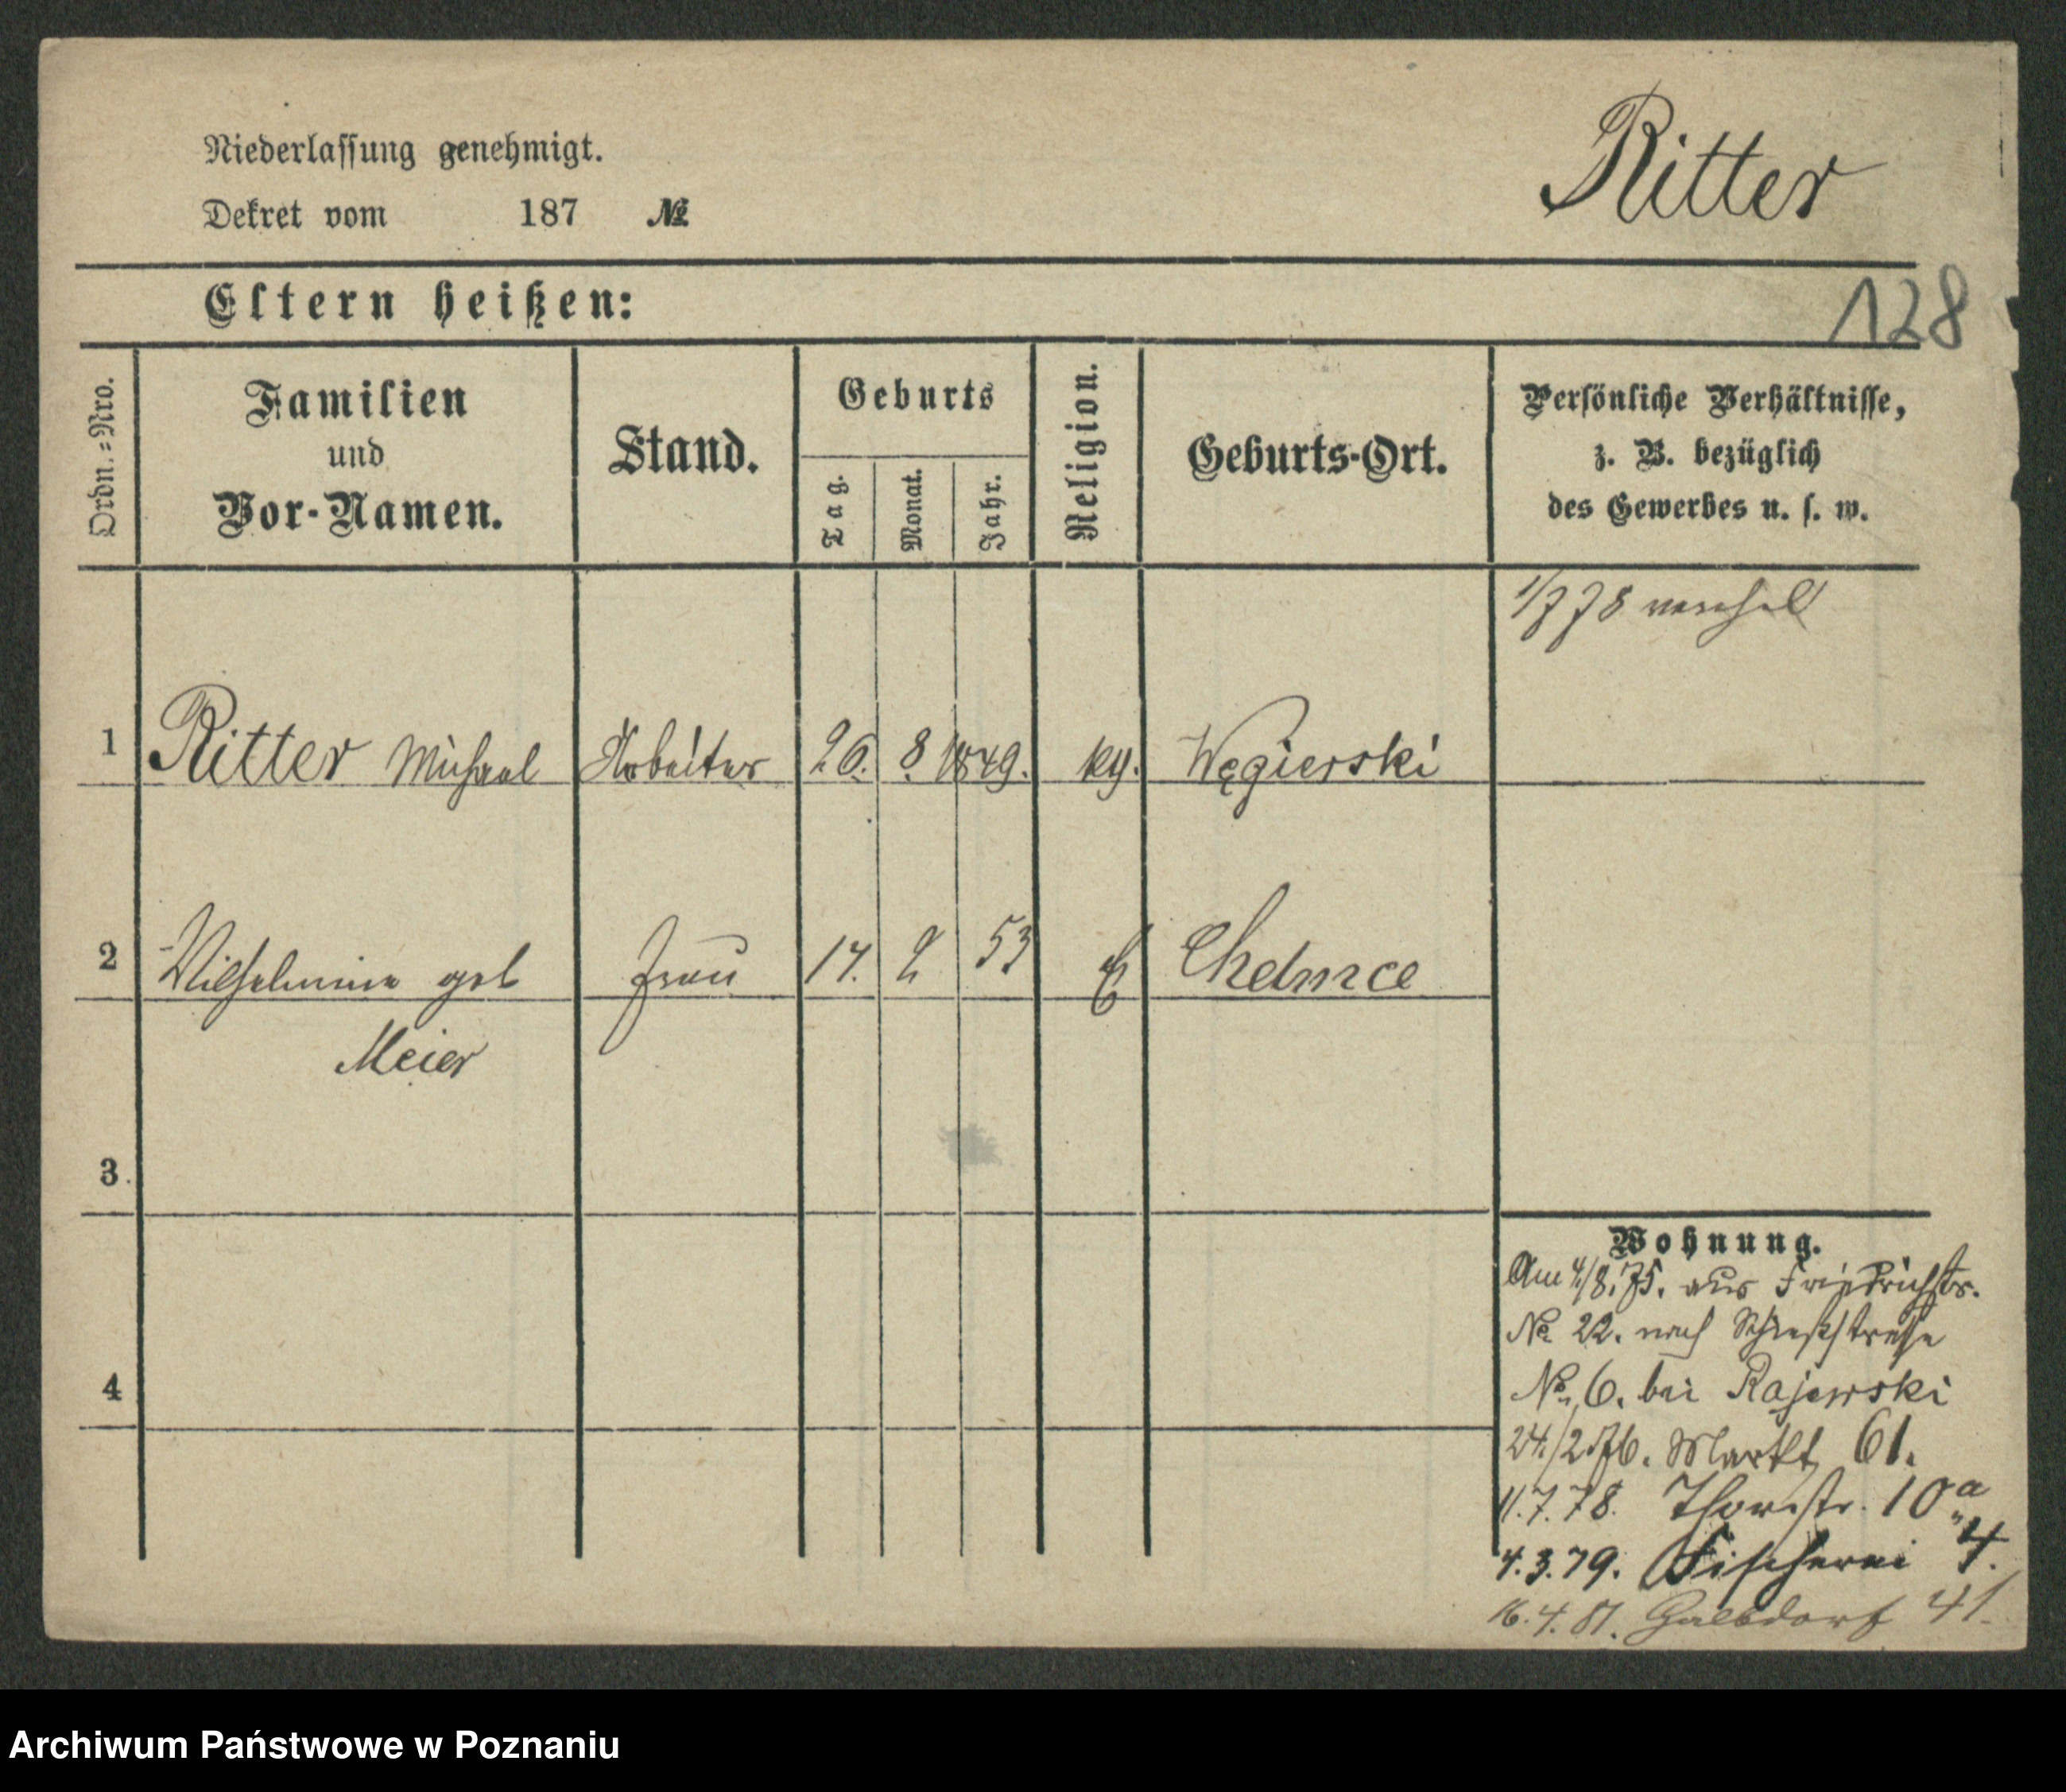 Niederlassung genehmigt.
Dekret vom 187 №
Ritter
Eltern heißen:
128
Ordn.=Nro.
Familien
und
Vor-Namen.
Stand.
Geburts
Tag.
Monat.
Jahr.
Religion.
Geburts-Ort.
Persönliche Verhältnisse,
z. B. bezüglich
des Gewerbes u. s. w.
1/7 78 verehel
1 Ritter Michael Arbeiter 26. 8. 1849. Węgierski
2 Wilhelmine geb Frau 17. 2 53 E Chelmce
Meier
3.
4
Wohnung.
Am 4/8.75. aus Friedrichstr.
No 22. nach Schießstraße
No 6. bei Rajewski
24./2.76. Markt 61.
11.7.78. Thorstr. 10a
4.3.79. Fischerei 4.
16.4.81. 41.
Archiwum Państwowe w Poznaniu